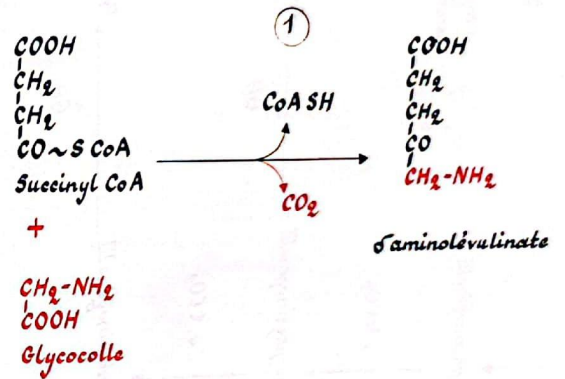 1
COOH
CH2
CH2
CO~S CoA
Succinyl CoA
+
CH2-NH2
COOH
Glycocolle
CoA SH
CO2
COOH
CH2
CH2
CO
CH2-NH2
δaminolévulinate